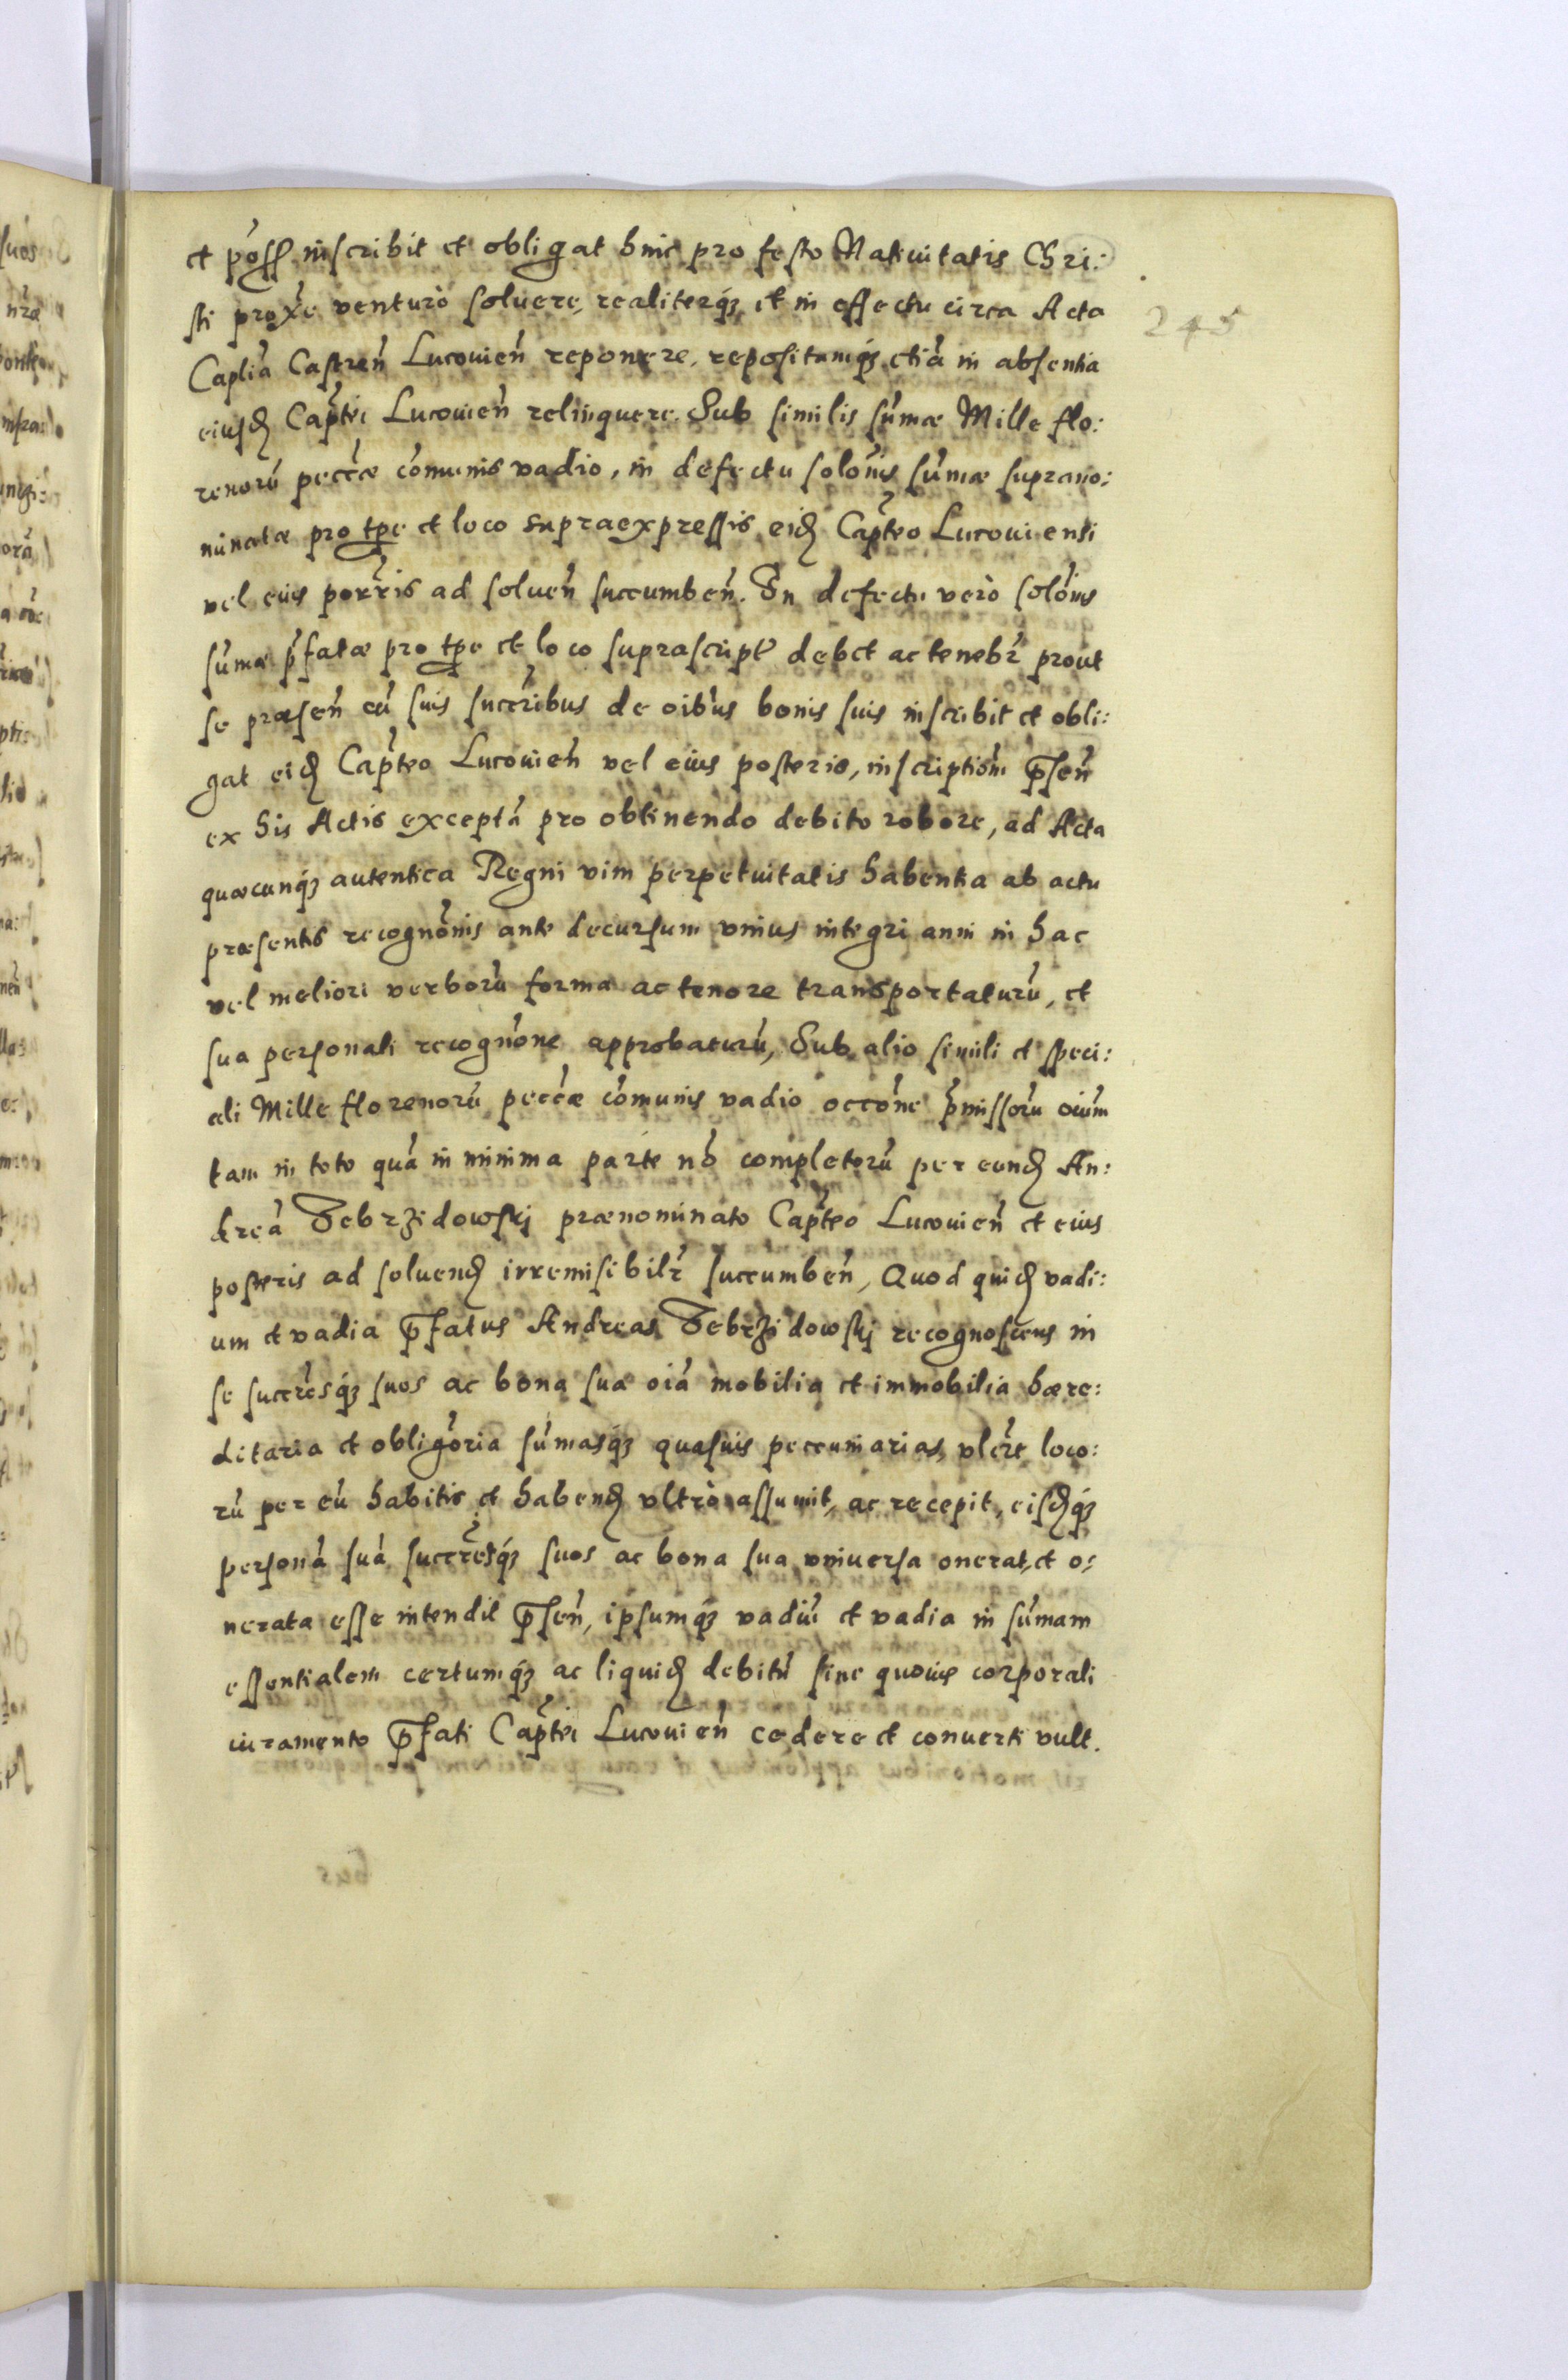 et poss inscribit et obligat hinc pro festo Natiuitatis Chri:
sti proxe venturo soluere, realiterq3 et in effectu circa Acta
Caplia Castren Lucouien reponere, repositamq3 etia in absentia
eiusd Captei Lucouien relinquere. Sub similis sumæ Mille flo:
renoru peccæ comunis vadio, in defectu solonis sumæ suprano:
minatæ pro tpe et loco supraexpressis eid Capteo Lucouiensi
vel eius porris ad soluen succumben. In defectu verò solonis
sumæ pfatæ pro tpe et loco suprascript debet ac tenebr prout
se præsen cu suis succribus de oibus bonis suis inscribit et obli:
gat eid Capteo Lucouien vel eius posteris, inscriptiom psen
ex his Actis excepta pro obtinendo debito robore, ad Acta
quæcunq3 autentica Regni vim perpetuitatis habentia ab actu
præsentis recognonis ante decursum vnius integri anni in hac
vel meliori verboru forma ac tenore transportaturu, et
sua personali recognone approbaturu, Sub alio simili et speci:
ali Mille florenoru peccæ comunis vadio occone pmissoru oium
tam in toto qua in minima parte no completoru per eund An:
drea Zebrzidowskj prænominato Capteo Lucouien et eius
posteris ad soluend irremisibilr succumben, Quod quid vadi:
um et vadia pfatus Andreas Zebrzidowskj recognoscens in
se succresq3 suos ac bona sua oia mobilia et immobilia hære:
ditaria et obligoria sumasq3 quasuis peccuniarias, vlcre loco:
ru per eu habitis et habend vltrò assumit, ac recepit, eisdq3
persona sua succresq3 suos ac bona sua vniuersa onerat, et o:
nerata esse intendit psen, ipsumq3 vadiu et vadia in sumam
essentialem certumq3 ac liquid debitu sine quouis corporali
iuramento pfati Captei Lucouien cedere et conuerti vult.
245